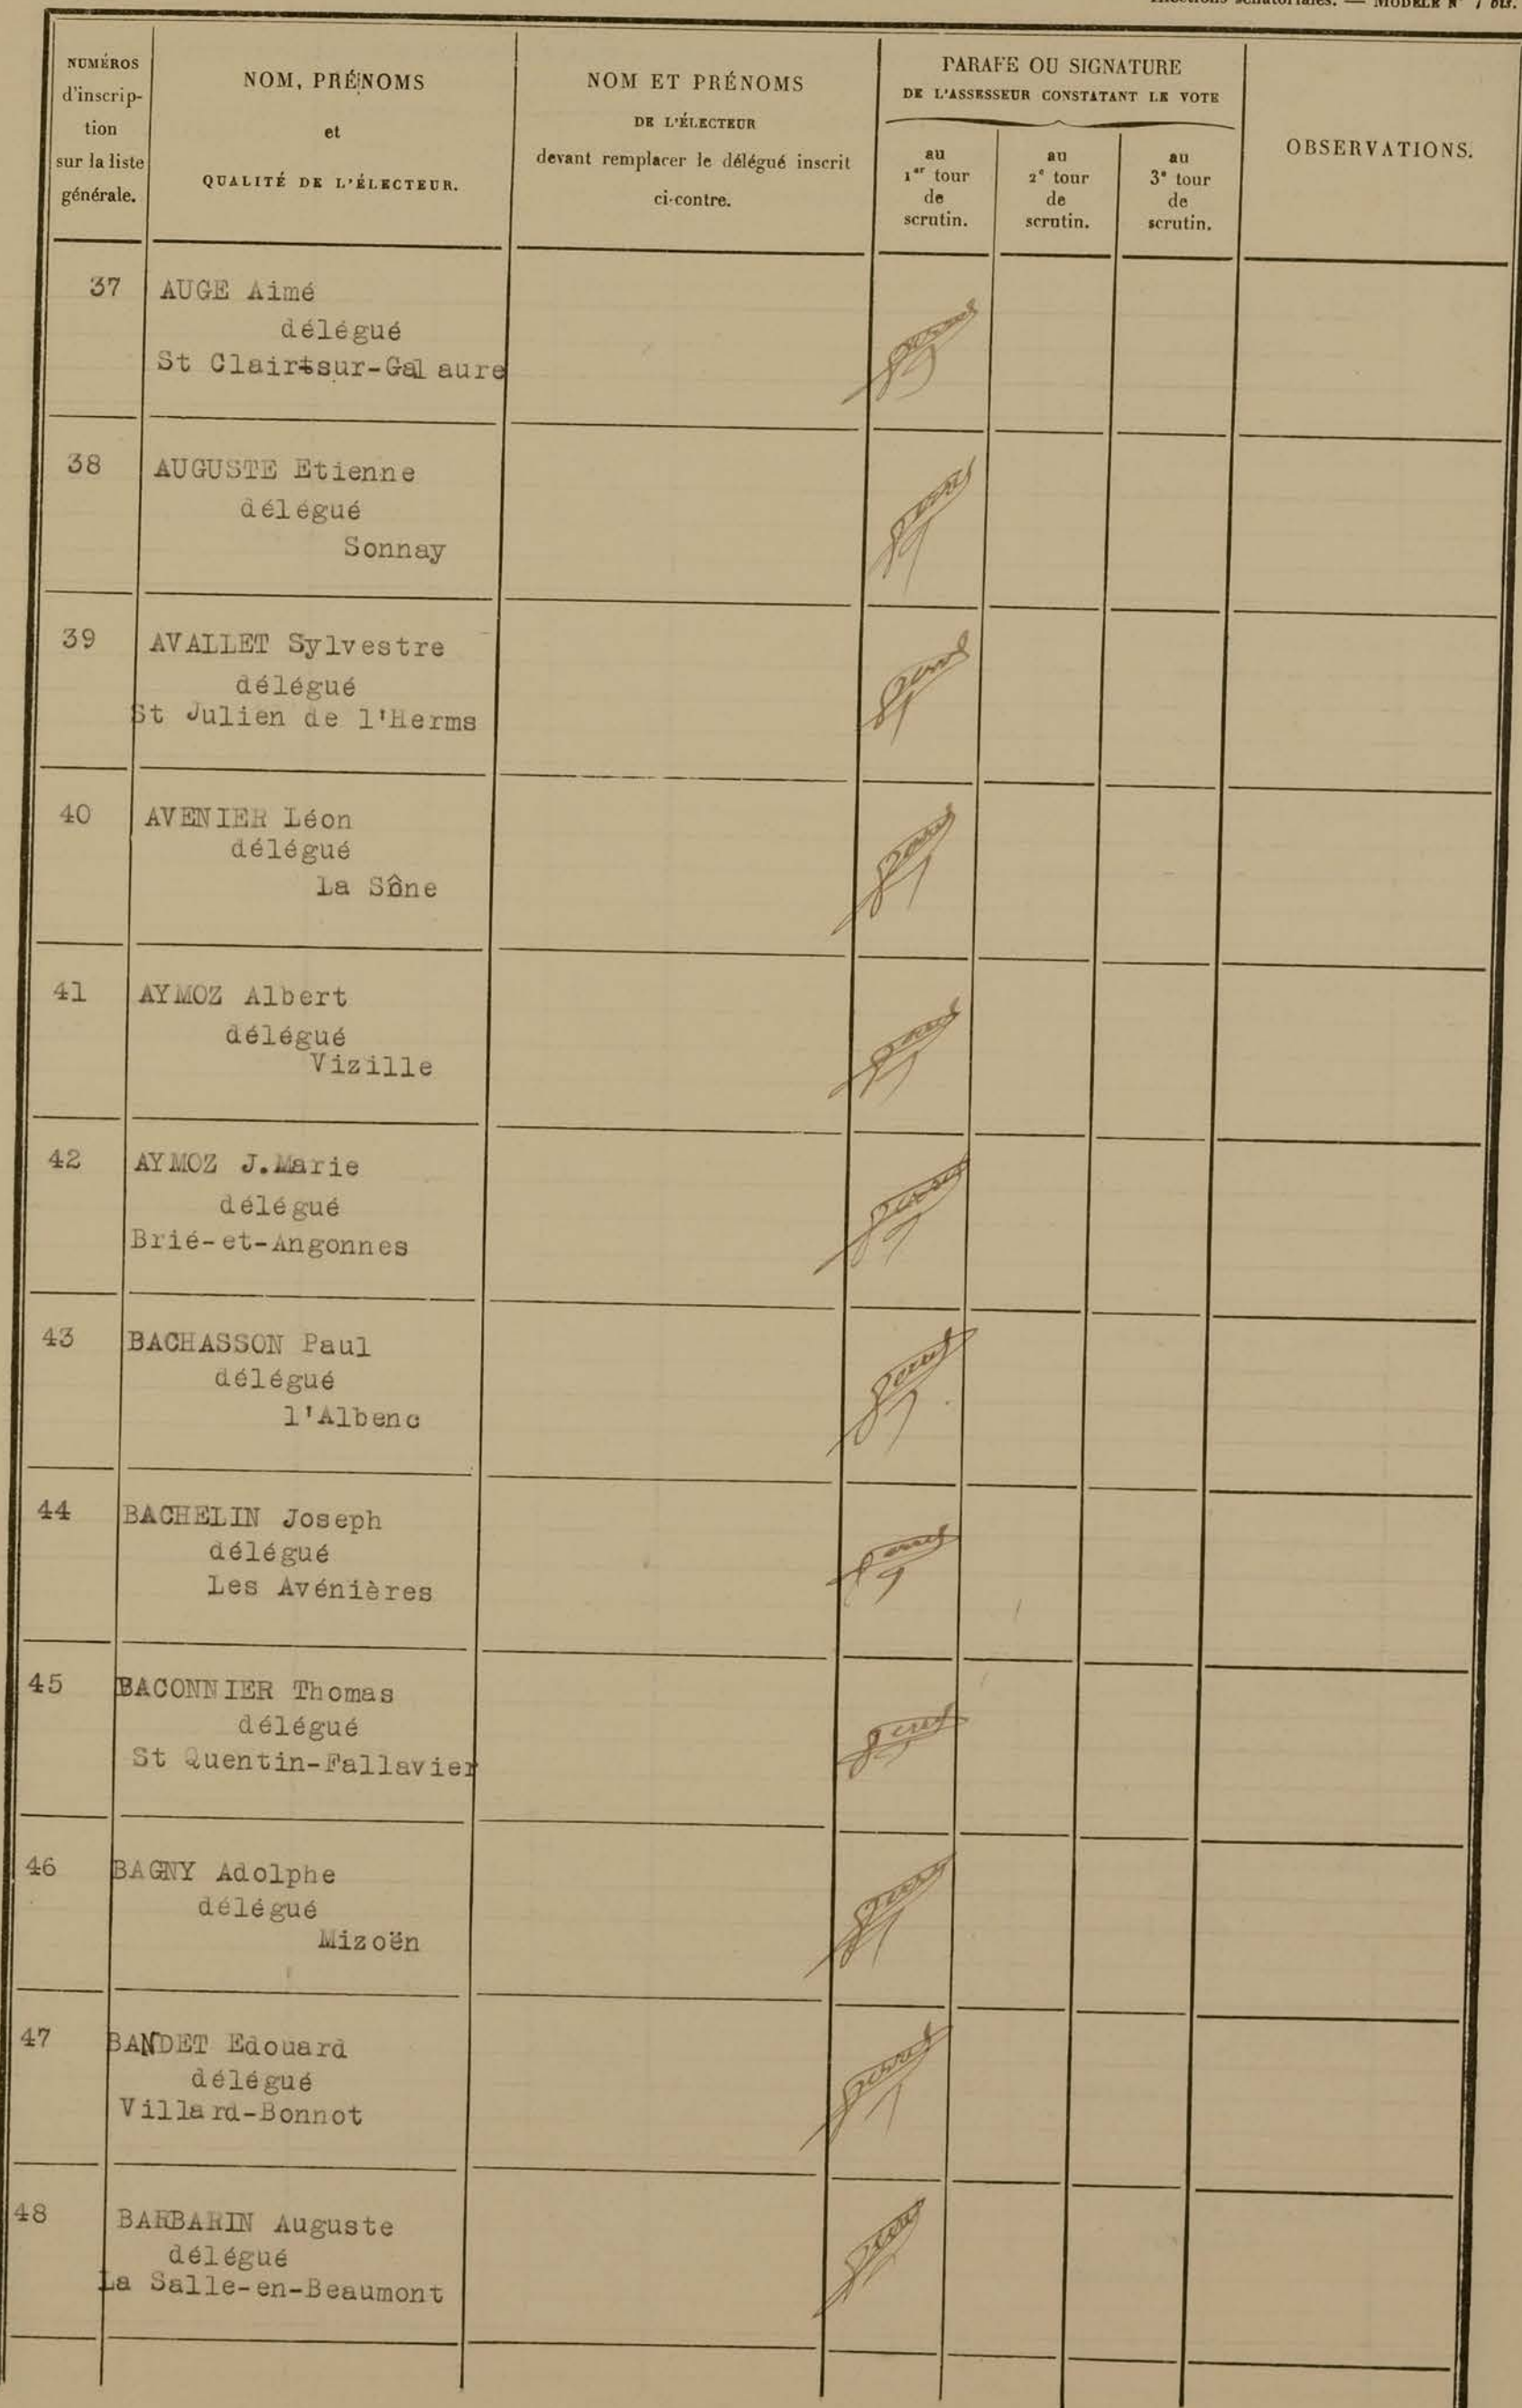 Élections sénatoriales. — MODÈLE N° 7 bis.
NUMÉROS
d'inscrip-
tion
sur la liste
générale.
NOM, PRÉNOMS
et
QUALITÉ DE L'ÉLECTEUR.
NOM ET PRÉNOMS
DE L'ÉLECTEUR
devant remplacer le délégué inscrit
ci-contre.
PARAFE OU SIGNATURE
DE L'ASSESSEUR CONSTATANT LE VOTE
au
1er tour
de
scrutin.
au
2e tour
de
scrutin.
au
3e tour
de
scrutin.
OBSERVATIONS.
37 AUGE Aimé
délégué
St Clair-sur-Galaure
38 AUGUSTE Etienne
délégué
Sonnay
39 AVALLET Sylvestre
délégué
St Julien de l'Herms
40 AVENIER Léon
délégué
La Sône
41 AYMOZ Albert
délégué
Vizille
42 AYMOZ J.Marie
délégué
Brié-et-Angonnes
43 BACHASSON Paul
délégué
l'Albenc
44 BACHELIN Joseph
délégué
Les Avénières
45 BACONNIER Thomas
délégué
St Quentin-Fallavier
46 BAGNY Adolphe
délégué
Mizoën
47 BANDET Edouard
délégué
Villard-Bonnot
48 BARBARIN Auguste
délégué
La Salle-en-Beaumont